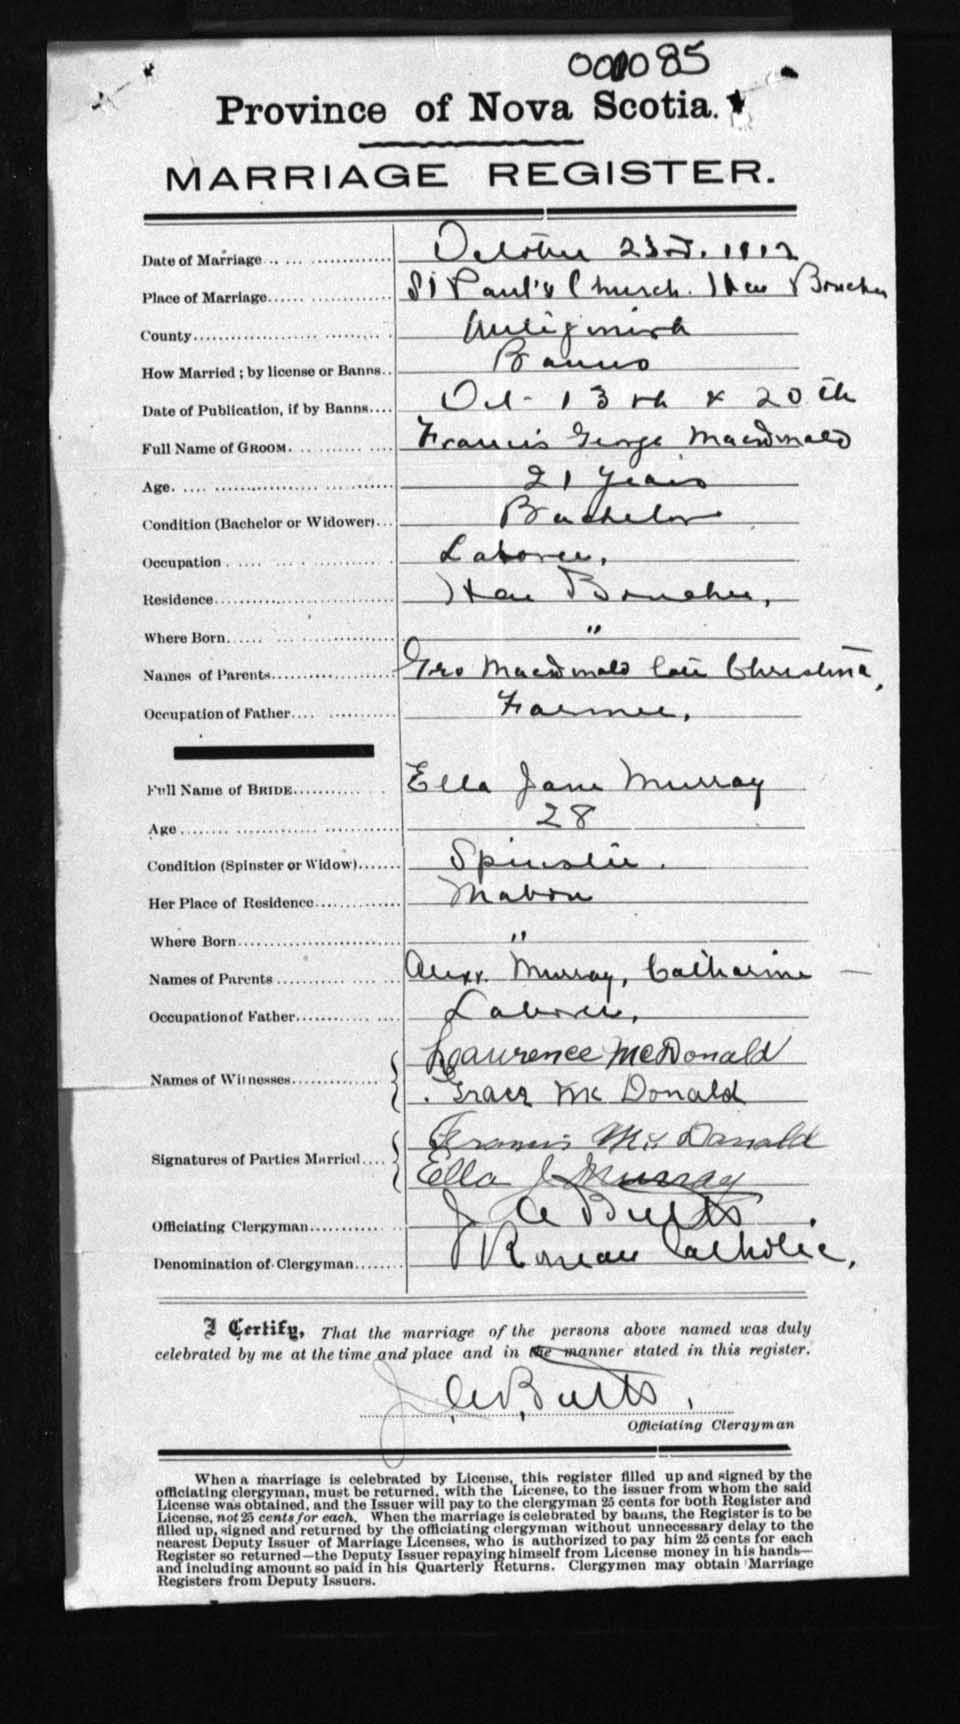 000085
Province of Nova Scotia.
MARRIAGE REGISTER.
Date of Marriage October 23rd. 1912
Place of Marriage St Paul's Church. Hav Boucher
County Antigonish
How Married ; by license or Banns Banns
Date of Publication, if by Banns Oct - 13th & 20th
Full Name of GROOM Francis George Macdonald
Age 21 years
Condition (Bachelor or Widower) Bachelor
Occupation Laborer,
Residence Hav Boucher,
Where Born "
Names of Parents Geo Macdonald late Christina,
Occupation of Father Farmer,
Full Name of BRIDE Ella Jane Murray
Age 28
Condition (Spinster or Widow) Spinster.
Her Place of Residence Mabou
Where Born "
Names of Parents Alexr. Murray, Catharine —
Occupation of Father Laborer,
Names of Witnesses Lawrence McDonald
Grace Mc Donald
Signatures of Parties Married Francis Mc Donald
Ella J Murray
Officiating Clergyman J A Butts.
Denomination of Clergyman Roman Catholic,
I Certify, That the marriage of the persons above named was duly
celebrated by me at the time and place and in the manner stated in this register.
J. A. Butts.
Officiating Clergyman
When a marriage is celebrated by License, this register filled up and signed by the
officiating clergyman, must be returned, with the License, to the issuer from whom the said
License was obtained, and the Issuer will pay to the clergyman 25 cents for both Register and
License, not 25 cents for each. When the marriage is celebrated by banns, the Register is to be
filled up, signed and returned by the officiating clergyman without unnecessary delay to the
nearest Deputy Issuer of Marriage Licenses, who is authorized to pay him 25 cents for each
Register so returned—the Deputy Issuer repaying himself from License money in his hands—
and including amount so paid in his Quarterly Returns. Clergymen may obtain Marriage
Registers from Deputy Issuers.